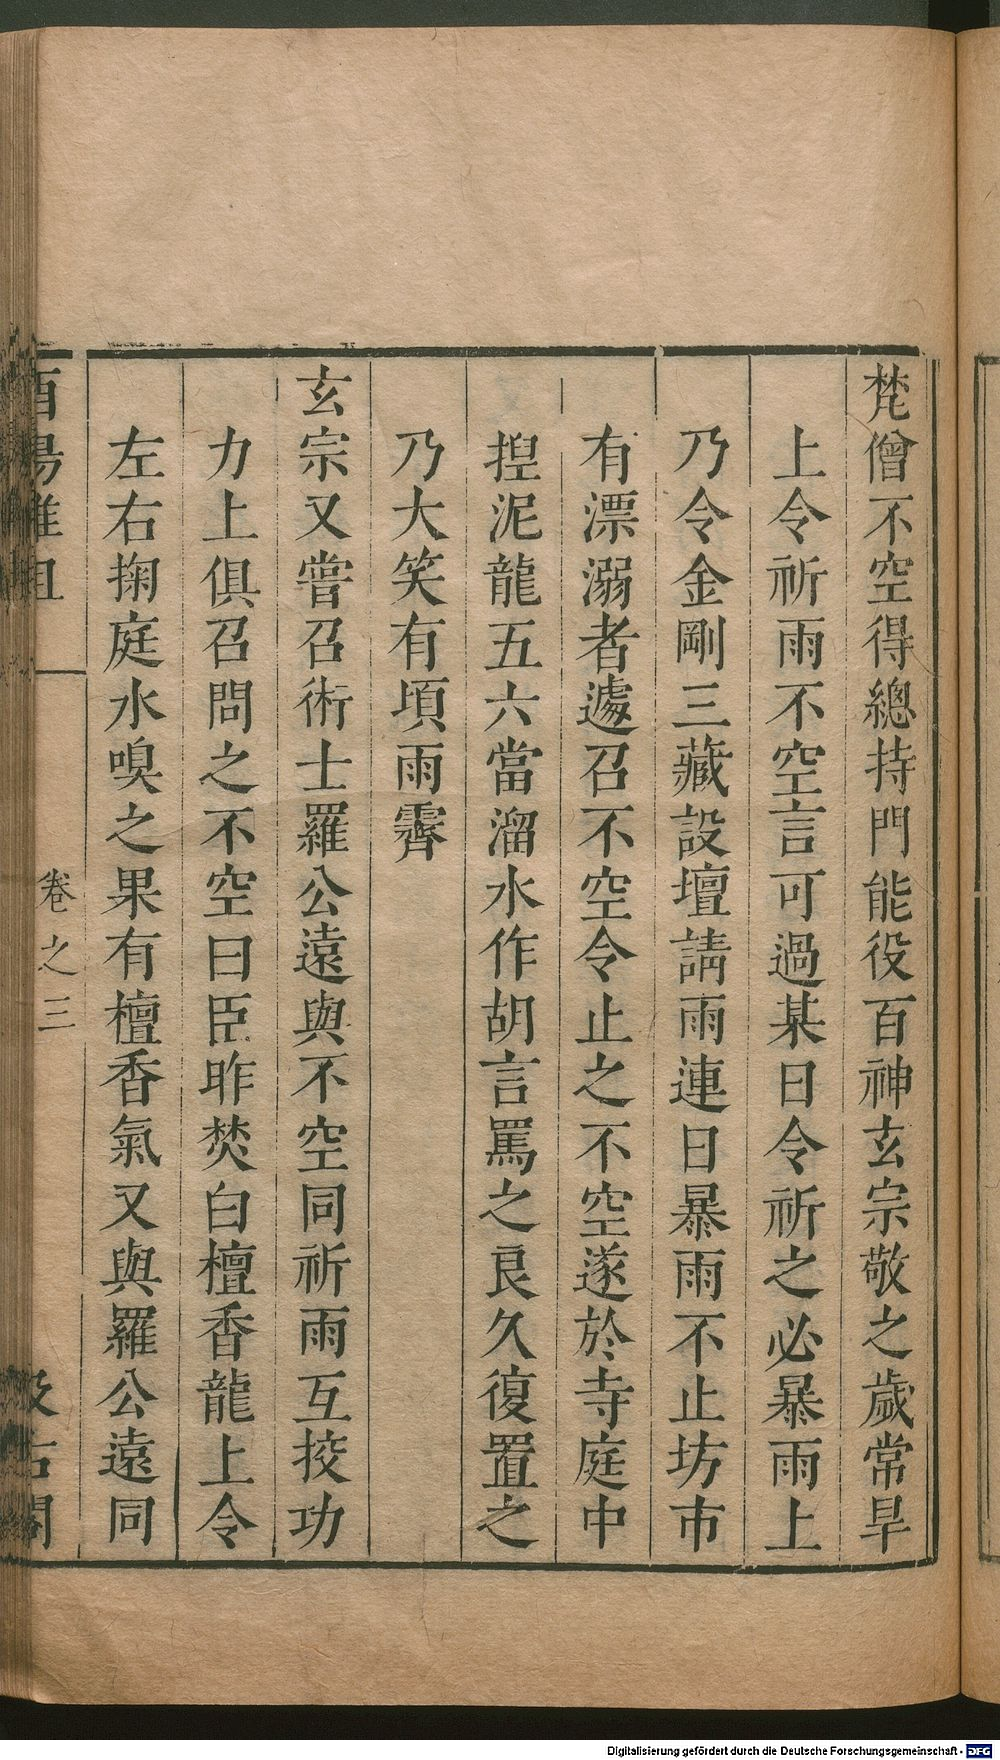 梵僧不空得總持門能役百神玄宗敬之歲常旱
上令祈雨不空言可過某日令祈之必暴雨上
乃令金剛三藏設壇請雨連日暴雨不止坊市
有漂溺者遽召不空令止之不空遂於寺庭中
揑泥龍五六當溜水作胡言罵之良久復置之
乃大笑有頃雨霽
玄宗又嘗召術士羅公遠與不空同祈雨互挍功
力上俱召問之不空曰臣昨焚白檀香龍上令
左右掬庭水嗅之果有檀香氣又與羅公遠同
酉陽雜俎
卷之三
汲古閣
Digitalisierung gefördert durch die Deutsche Forschungsgemeinschaft - DFG